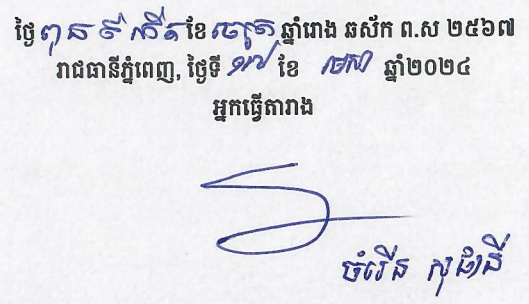 ថ្ងៃ ពុធ ៩ កើត ខែ ចេត្រ ឆ្នាំរោង ឆស័ក ព.ស ២៥៦៧
រាជធានីភ្នំពេញ, ថ្ងៃទី ១៧ ខែ មេសា ឆ្នាំ២០២៤
អ្នកធ្វើតារាង
ចំរើន សុផានី